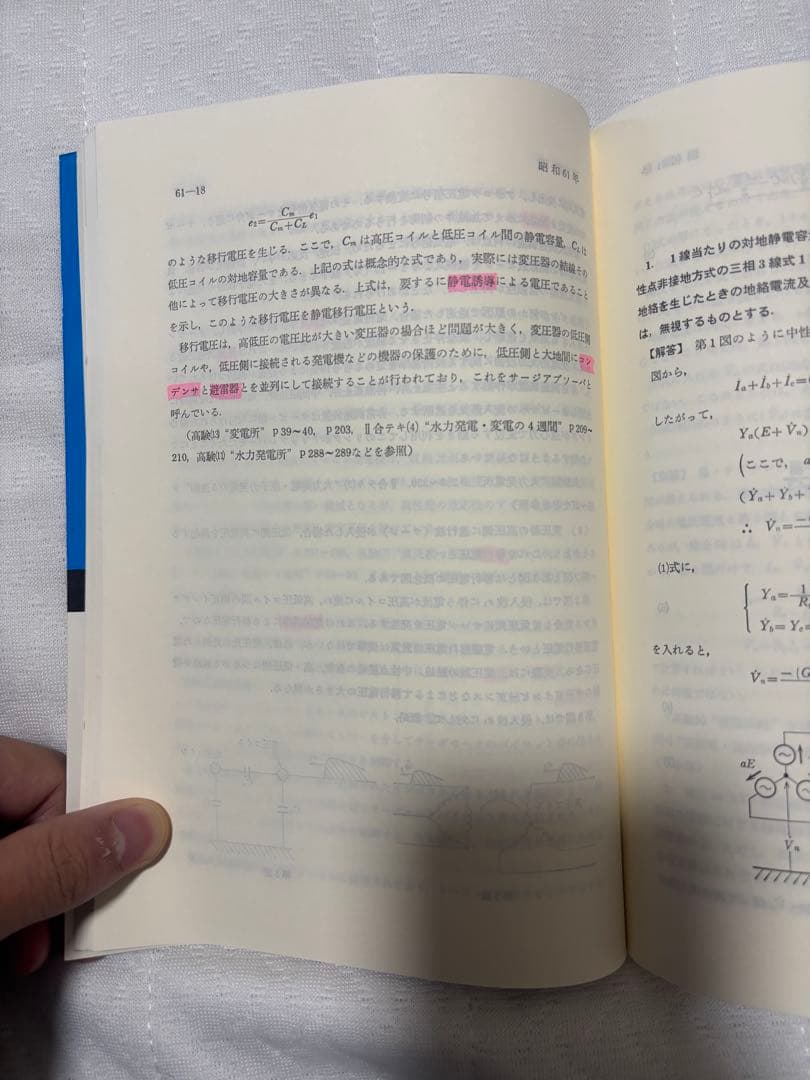 61—18
昭和61年
e₂=Cₘ/(Cₘ+C_L) e₁
のような移行電圧を生じる．ここで，Cₘは高圧コイルと低圧コイル間の静電容量，C_Lは
低圧コイルの対地容量である．上記の式は概念的な式であり，実際には変圧器の結線その
他によって移行電圧の大きさが異なる．上式は，要するに静電誘導による電圧であること
を示し，このような移行電圧を静電移行電圧という．
移行電圧は，高低圧の電圧比が大きい変圧器の場合ほど問題が大きく，変圧器の低圧側
コイルや，低圧側に接続される発電機などの機器の保護のために，低圧側と大地間にコン
デンサと避雷器とを並列にして接続することが行われており，これをサージアブソーバと
呼んでいる．
（高験⒀“変電所”P39〜40，P203，Ⅱ合テキ⑷“水力発電・変電の4週間”P209〜
210，高験⑾“水力発電所”P288〜289などを参照）
1. 1線当たりの対地静電容
性点非接地方式の三相3線式1
地絡を生じたときの地絡電流及
は，無視するものとする．
【解答】 第1図のように中性
図から，
İₐ+İ_b+İ_c=
したがって，
Yₐ(E+V̇ₙ)
（ここで， a
(Ẏₐ+Ẏ_b+
∴ V̇ₙ=
⑴式に，
Yₐ=1/R
Ẏ_b=Y_c=
を入れると，
V̇ₙ=−{G
aE
V̇ₙ